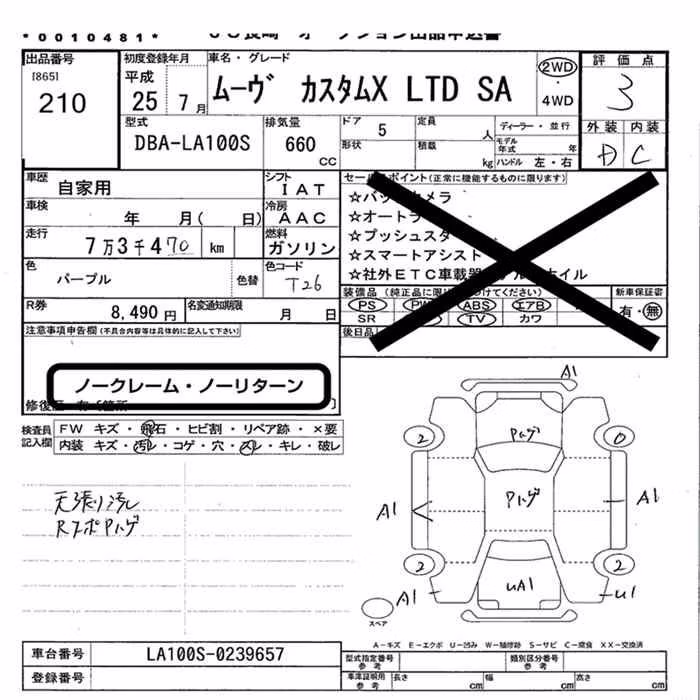 *0010481*
JU長崎 オークション出品申込書
出品番号
[865]
210
初度登録年月
平成
25 7月
車名・グレード
ムーヴ カスタムX LTD SA
2WD
・
4WD
評価点
3
外装 内装
D C
型式
DBA-LA100S
排気量
660
CC
ドア 5
形状
定員 人
積載 kg
ディーラー・並行
モデル年式 年
ハンドル 左・右
車歴
自家用
シフト
IAT
車検
年 月( 日)
冷房
AAC
走行
7万3千470 km
燃料
ガソリン
色
パープル
色替
色コード
T26
R券
8,490円
名変通知期限
月 日
セールスポイント(正常に機能するものに限ります)
☆バックカメラ
☆オートラ
☆プッシュスター
☆スマートアシスト
☆社外ETC車載器 アルミホイル
装備品 (純正品に限り○をつけてください)
PS PW ABS エアB
SR TV カワ
新車保証書
有・無
後日品
注意事項申告欄(不具合内容等は具体的に記入して下さい)
ノークレーム・ノーリターン
修復歴 有 [箇所 ]
検査員
記入欄
FW キズ・飛石・ヒビ割・リペア跡・×要
内装 キズ・汚レ・コゲ・穴・スレ・キレ・破レ
天張り汚レ
RスポPハゲ
A1
Pハゲ
2
0
A1
Pハゲ
A1
2
2
UA1
A1
U1
スペア
A-キズ E-エクボ U-凹み W-補修跡 S-サビ C-腐食 XX-交換済
車台番号
LA100S-0239657
登録番号
型式指定番号
参考
類別区分番号
参考
車庫証明用
参考
長さ cm
幅 cm
高さ cm